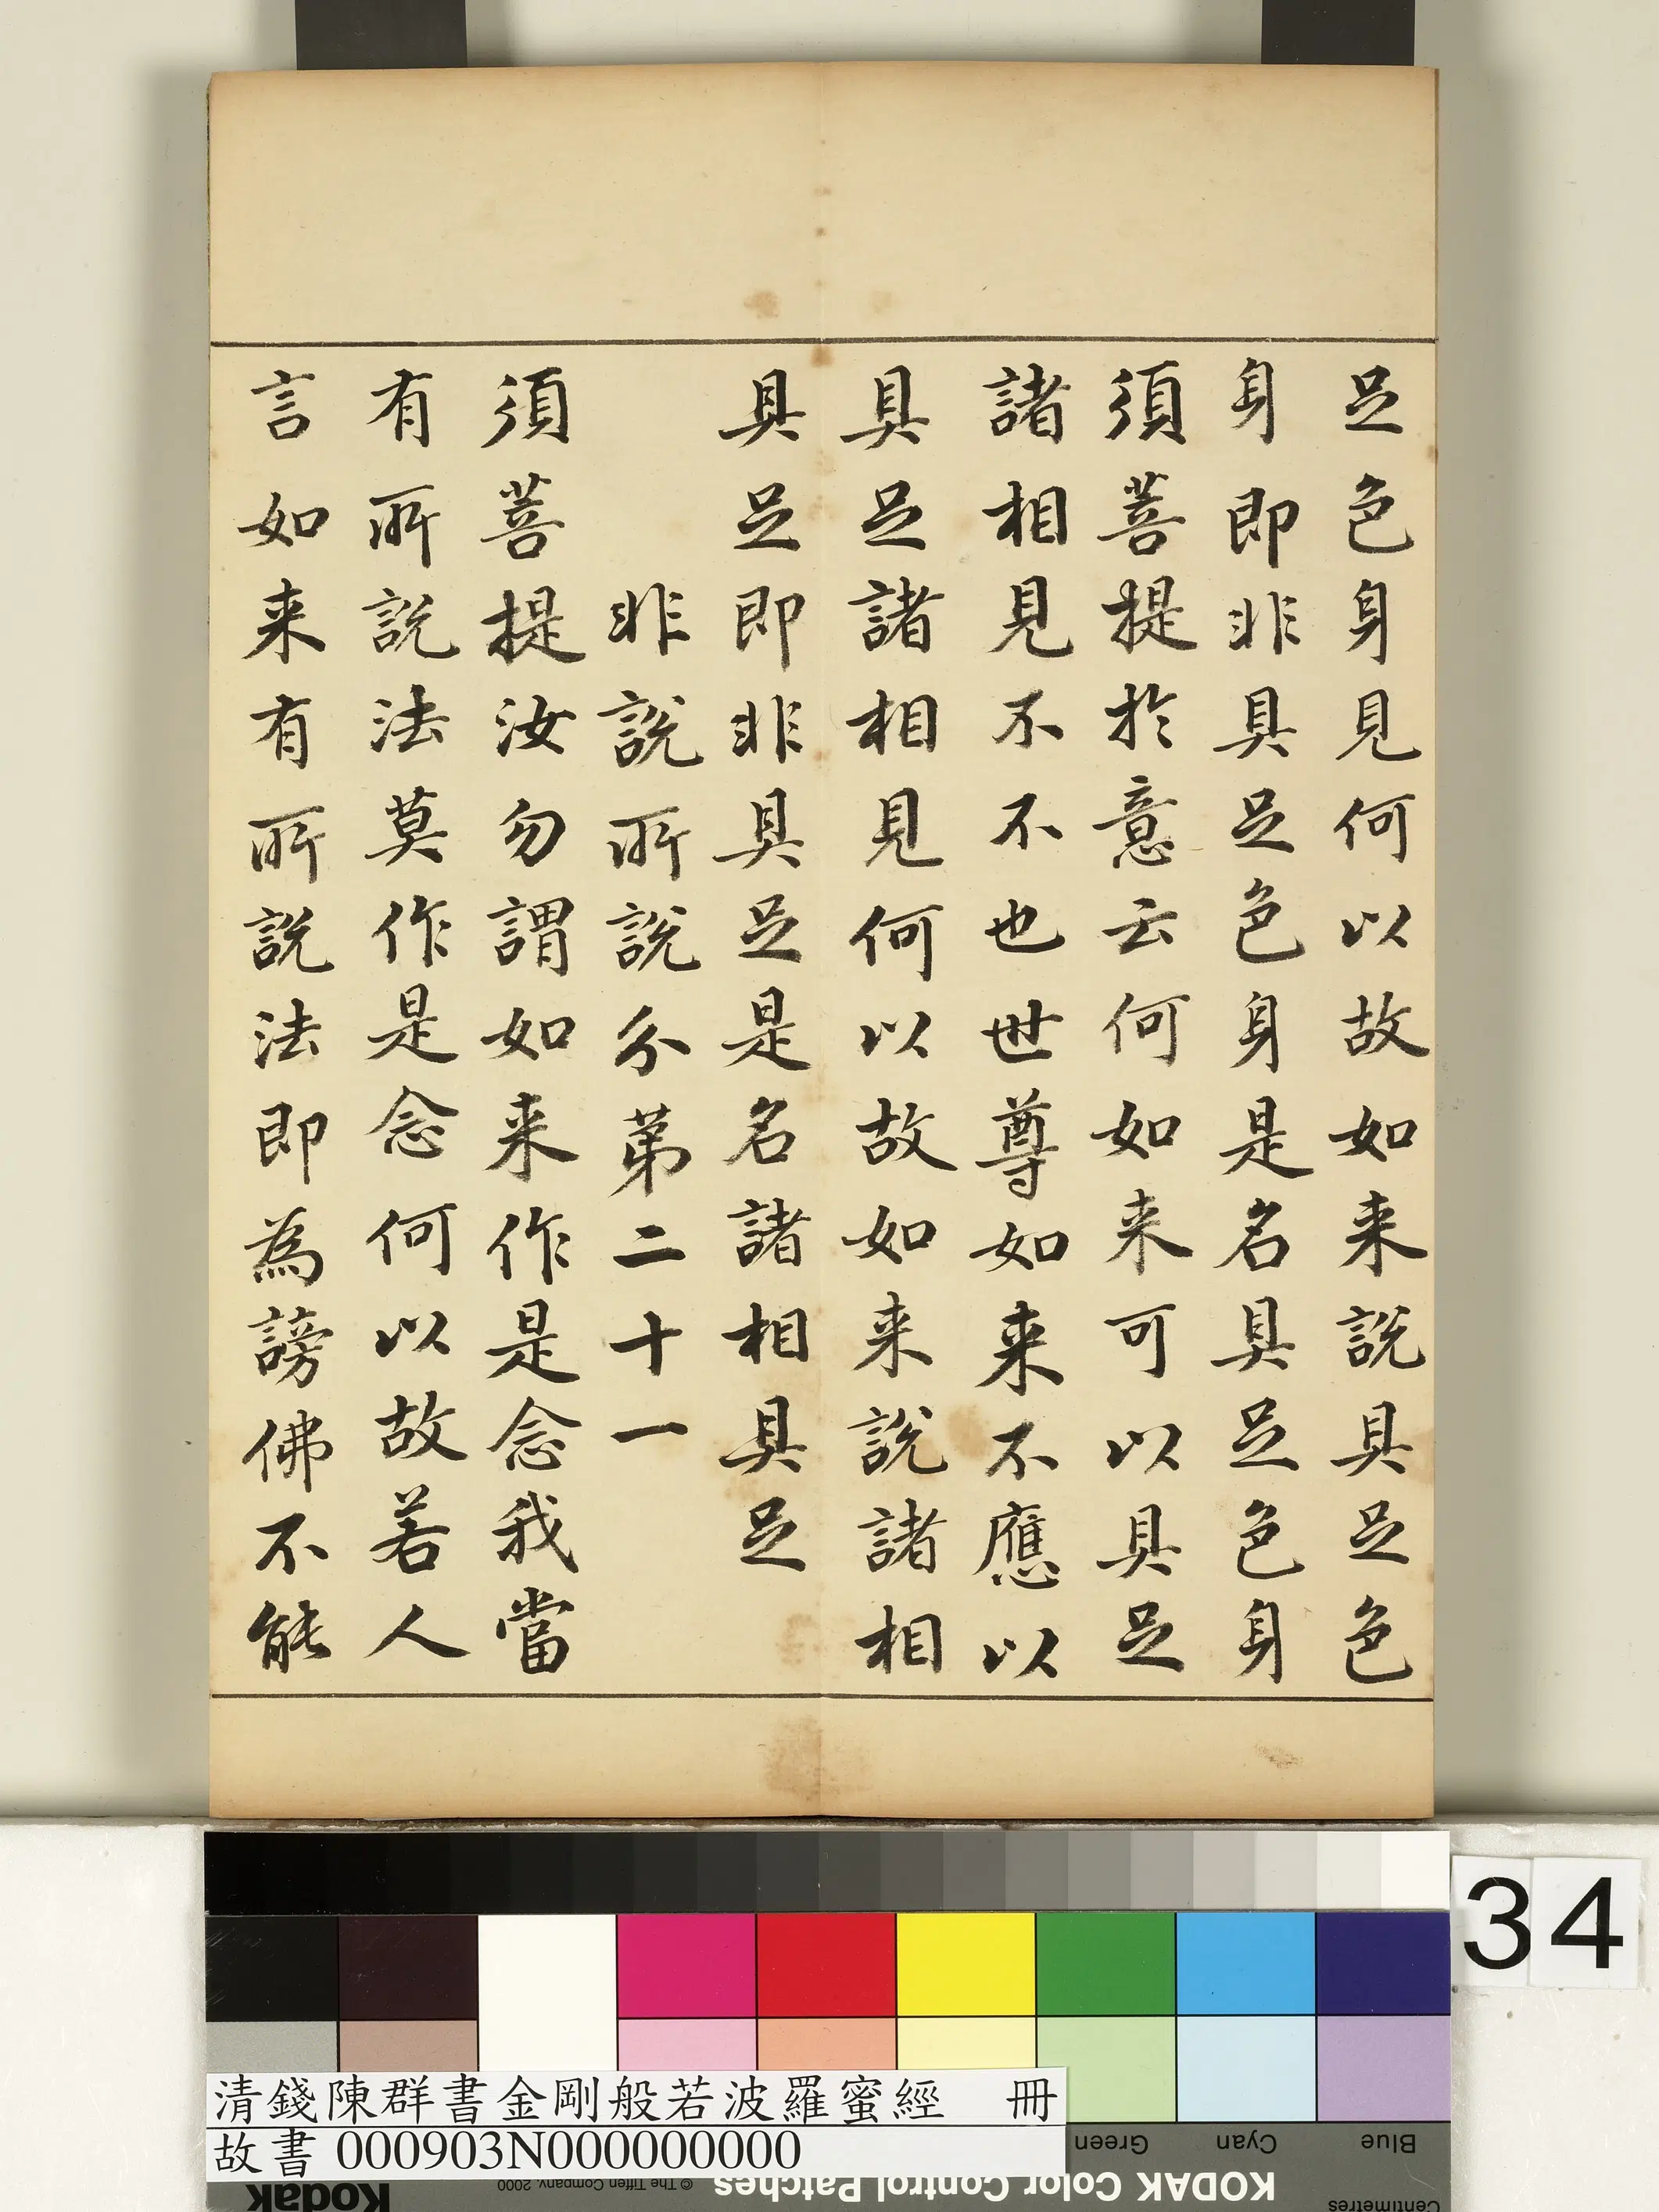 足色身見何以故如来說具足色
身即非具足色身是名具足色身
須菩提於意云何如来可以具足
諸相見不不也世尊如来不應以
具足諸相見何以故如来說諸相
具足即非具足是名諸相具足
非說所說分第二十一
須菩提汝勿謂如来作是念我當
有所說法莫作是念何以故若人
言如来有所說法即為謗佛不能
34
清錢陳群書金剛般若波羅蜜經　冊
故書 000903N000000000
Blue
Cyan
Green
KODAK Color Control Patches
© The Tiffen Company, 2000
Kodak
Centimetres